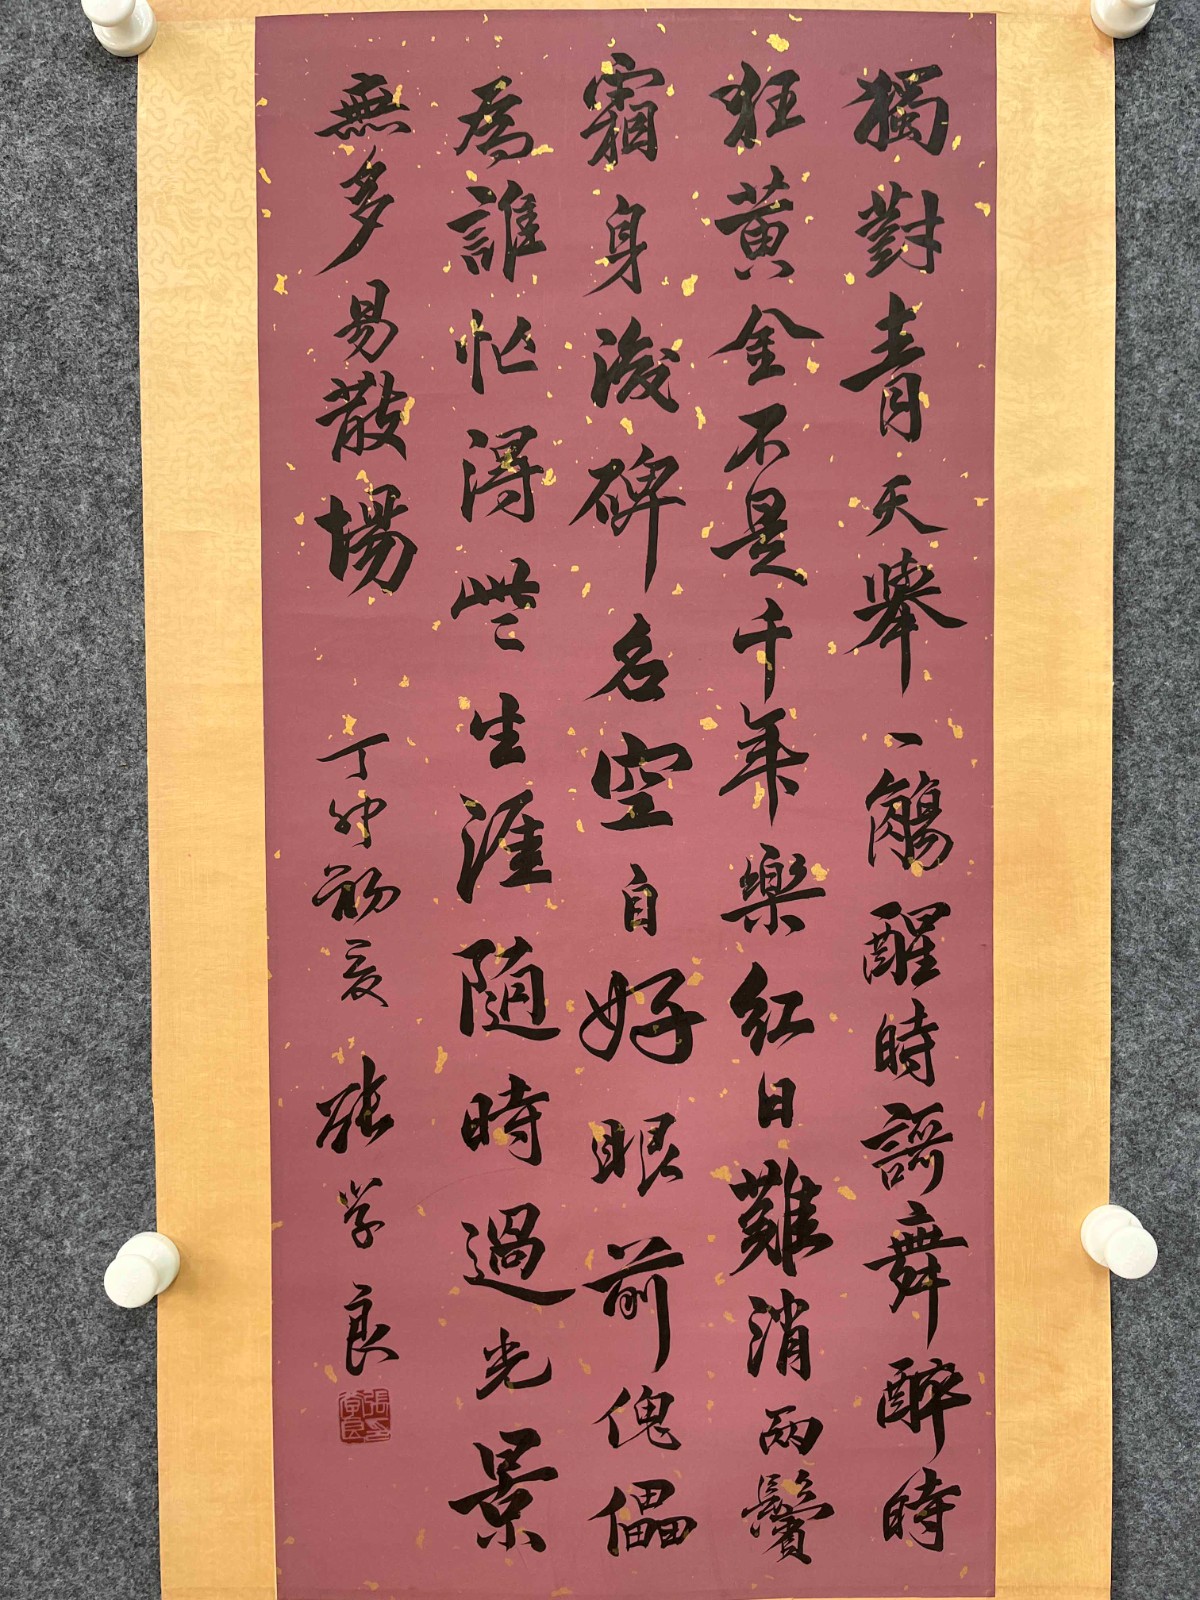 獨對青天舉一觴醒時謌舞醉時
狂黃金不是千年樂紅日難消兩鬢
霜身後碑名空自好眼前傀儡
為誰忙得些生涯隨時過光景
無多易散場
丁卯初夏 張学良
張學良印